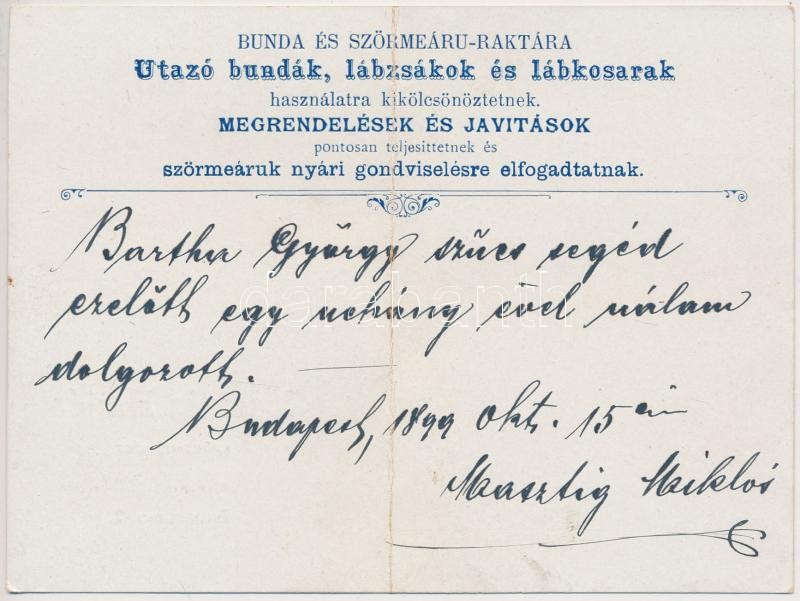 BUNDA ÉS SZÖRMEÁRU-RAKTÁRA
Utazó bundák, lábzsákok és lábkosarak
használatra kikölcsönöztetnek.
MEGRENDELÉSEK ÉS JAVITÁSOK
pontosan teljesittetnek és
szörmeáruk nyári gondviselésre elfogadtatnak.
Bartha György szűcs segéd
ezelőtt egy nehány évvel nálam
darabanth
dolgozott.
Budapest, 1899 okt. 15 én
Masztig Miklós